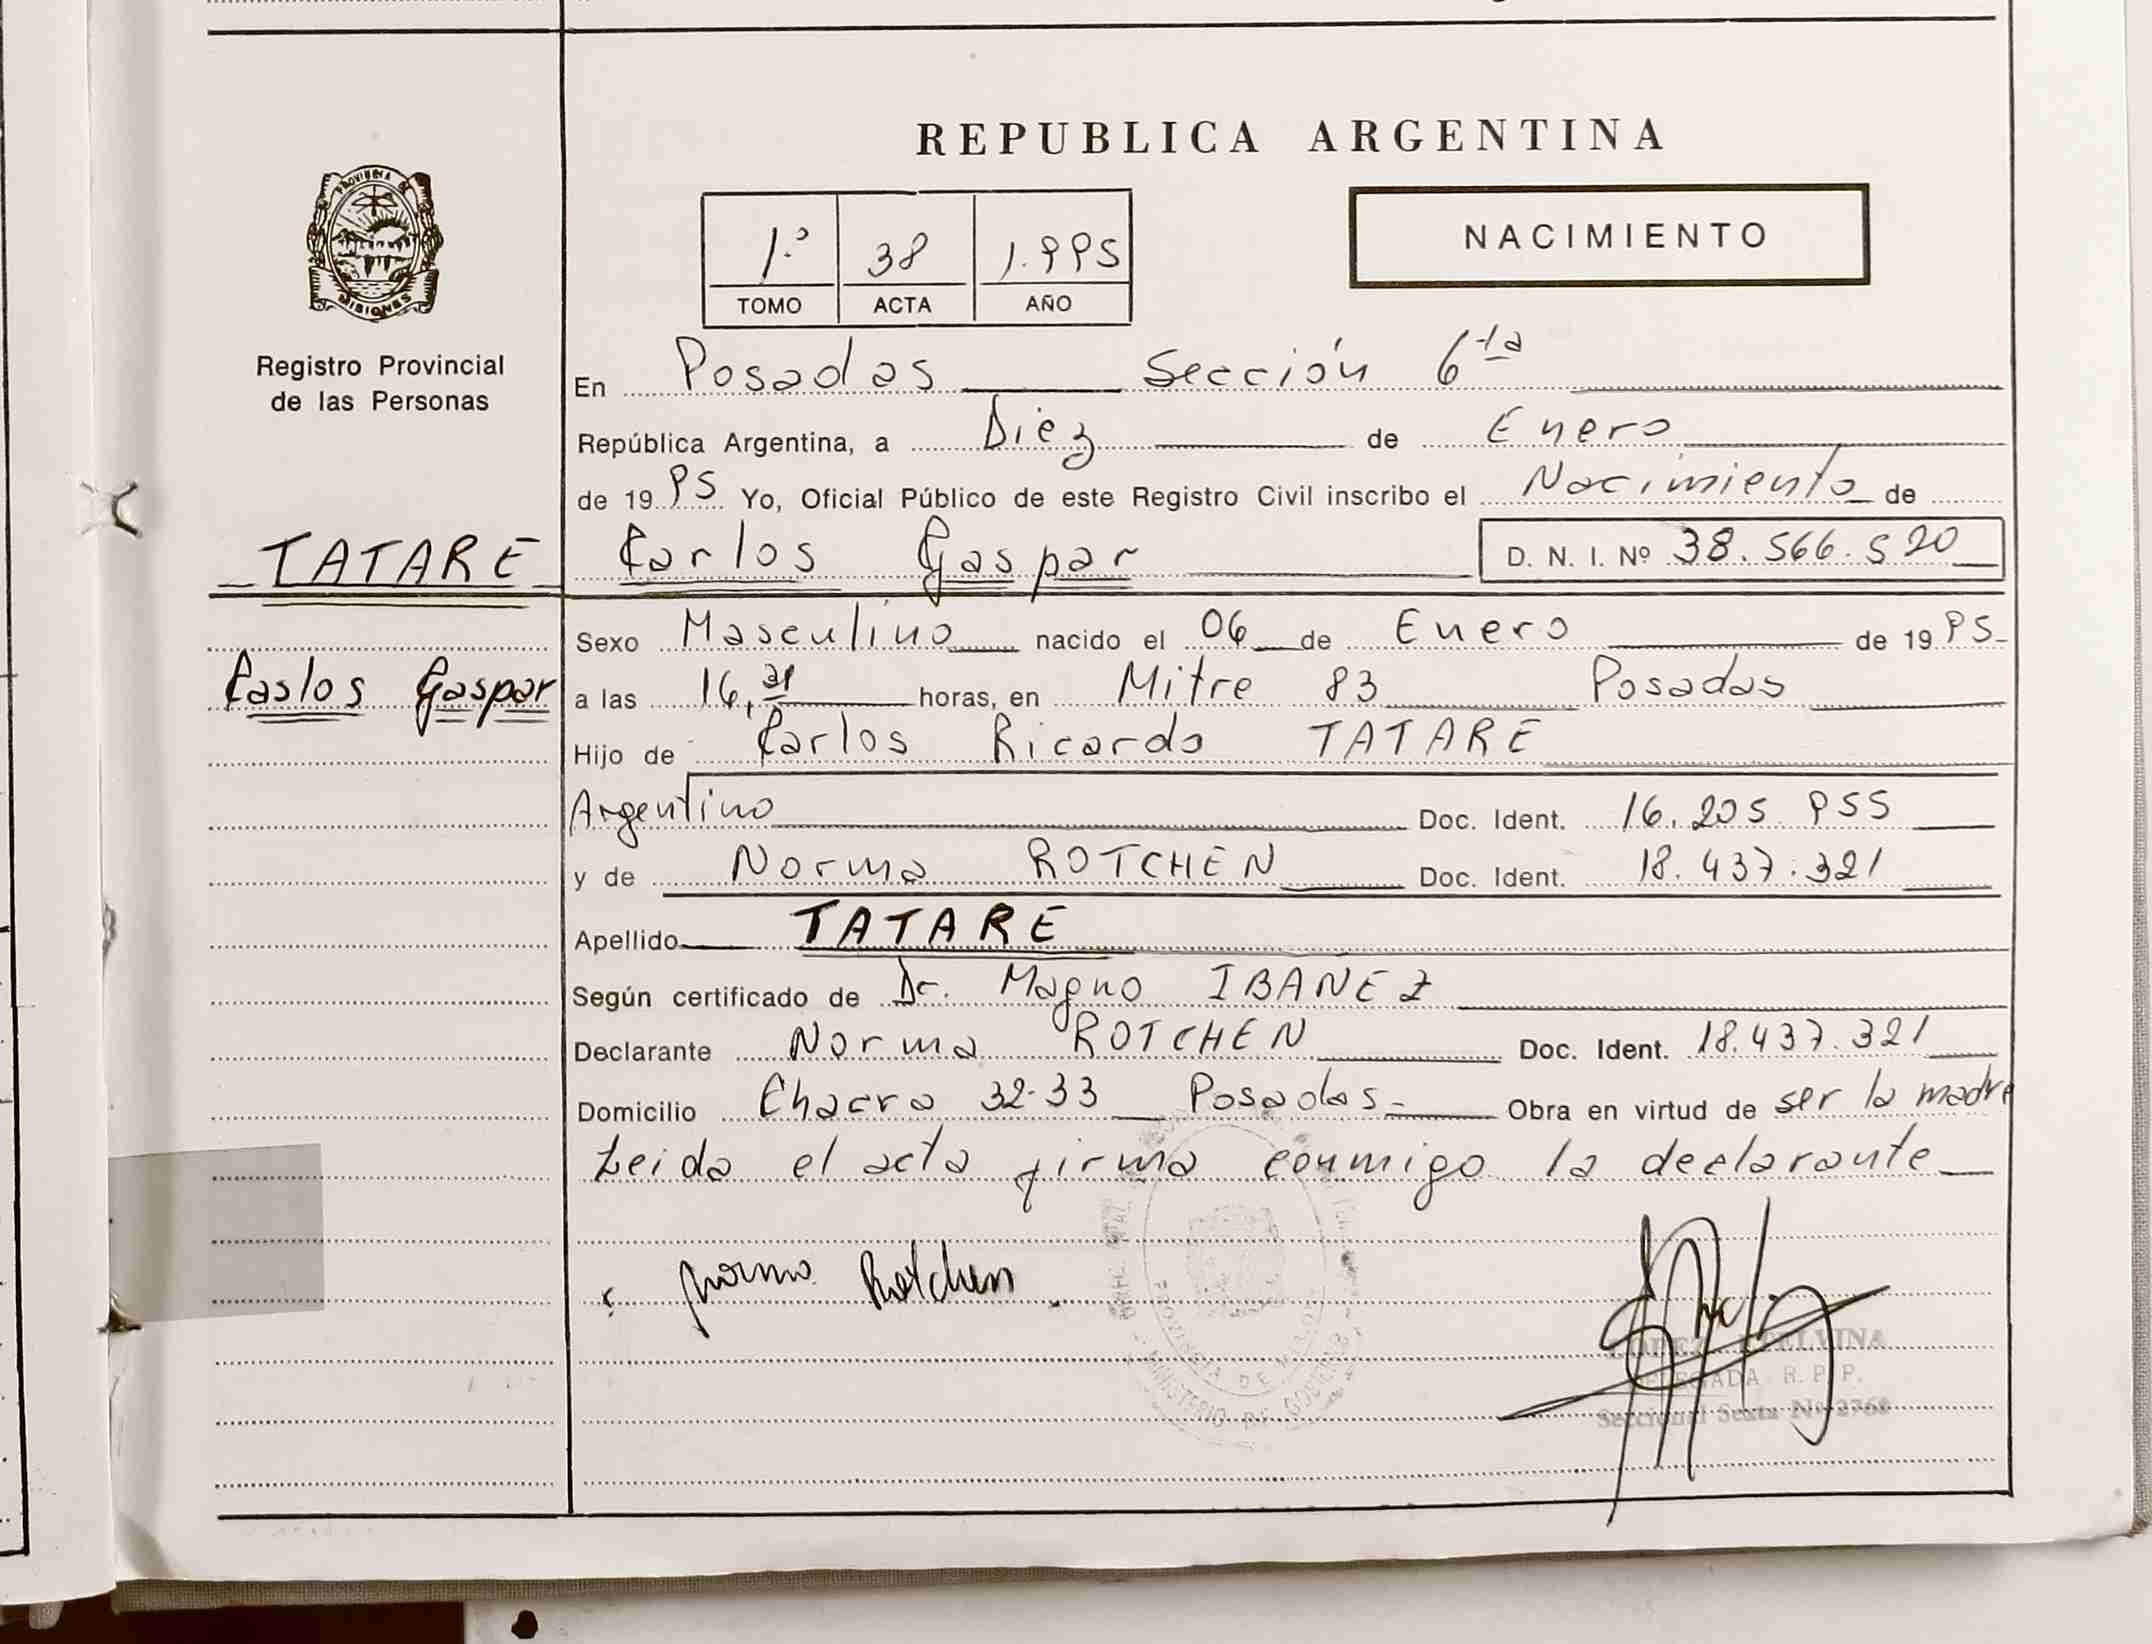 REPUBLICA ARGENTINA
NACIMIENTO
PROVINCIA DE
MISIONES
1º 38 1.995
TOMO ACTA AÑO
Registro Provincial
de las Personas
En Posadas Sección 6ta
República Argentina, a Diez de Enero
de 1995 Yo, Oficial Público de este Registro Civil inscribo el Nacimiento de
TATARE Carlos Gaspar D. N. I. Nº 38.566.520
Sexo Masculino nacido el 06 de Enero de 1995
Carlos Gaspar
a las 16, horas, en Mitre 83 Posadas
Hijo de Carlos Ricardo TATARE
Argentino Doc. Ident. 16.205.955
y de Norma ROTCHEN Doc. Ident. 18.437.321
Apellido TATARE
Según certificado de Dr. Magno IBANEZ
Declarante Norma ROTCHEN Doc. Ident. 18.437.321
Domicilio Chacra 32-33 Posadas Obra en virtud de ser la madre
Leida el acta firma conmigo la declarante
Norma Rotchen
PROVINCIA DE
MINISTERIO DE GOBIERNO
LOPEZ
DELEGADA R. P. P.
Seccional Sexta Nº 2768